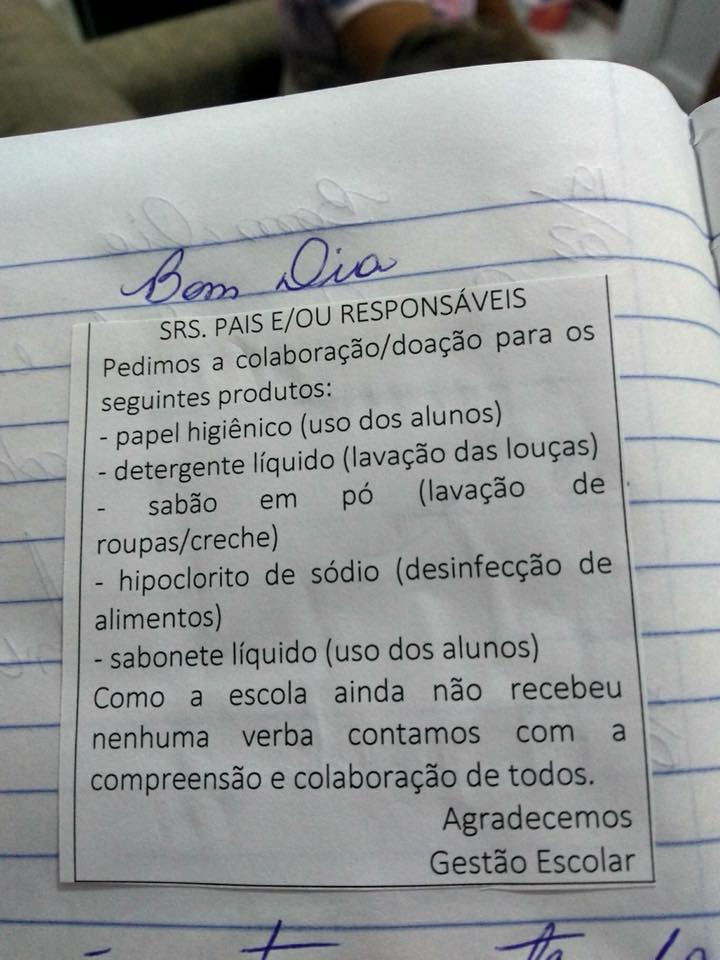 Bom Dia
SRS. PAIS E/OU RESPONSÁVEIS
Pedimos a colaboração/doação para os
seguintes produtos:
- papel higiênico (uso dos alunos)
- detergente líquido (lavação das louças)
- sabão em pó (lavação de
roupas/creche)
- hipoclorito de sódio (desinfecção de
alimentos)
- sabonete líquido (uso dos alunos)
Como a escola ainda não recebeu
nenhuma verba contamos com a
compreensão e colaboração de todos.
Agradecemos
Gestão Escolar